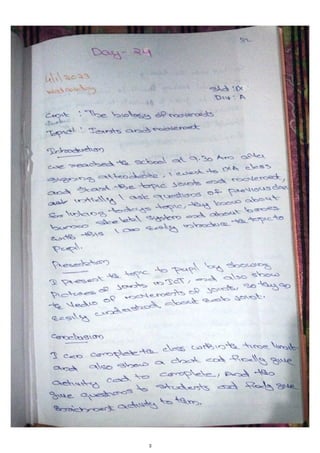 52
Day - 24
4/1/2023
Wednesday
Std : IX
Div : A
Unit : The biology of movements
Topic : Joints and movement
Introduction
We reached the school at 9.30 Am after
signing attendance, I went to IX A class
and start the topic Joints and movement,
initially I ask questions of previous class
for linking todays topic, they know about
human skeletal system and about bones
with this I can easily introduce the topic to
Pupil.
Presentation
I present the topic to pupil by showing
Pictures of joints in ICT, and also show
the vedio of movements of joints. So they so
easily understand about each joint.
Conclusion
I can complete the class within the time limit
and also show a chart and finally give
activity card to complete, And also
give questions to students and finally give
enrichment activity to them.
3